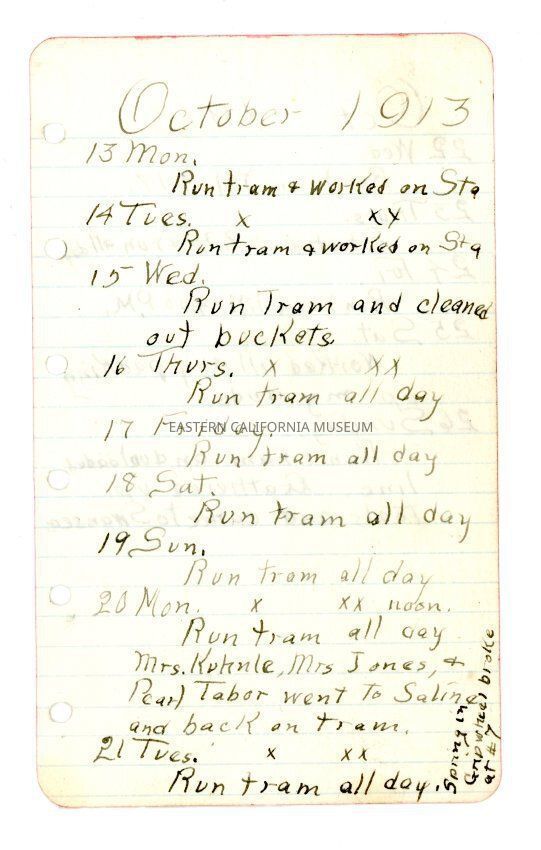 October 1913
13 Mon.
Run tram & worked on Sta
14 Tues. x xx
Run tram & worked on Sta
15 Wed.
Run Tram and cleaned
out buckets
16 Thurs. x xx
Run tram all day
17 Friday.
EASTERN CALIFORNIA MUSEUM
Run tram all day
18 Sat.
Run tram all day
19 Sun.
Run tram all day
20 Mon. x xx noon.
Run tram all day
Mrs. Kuhnle, Mrs Jones, &
Pearl Tabor went to Saline
and back on tram.
21 Tues. x xx
Run tram all day.
Spring in
Gripwheel broke
at #7